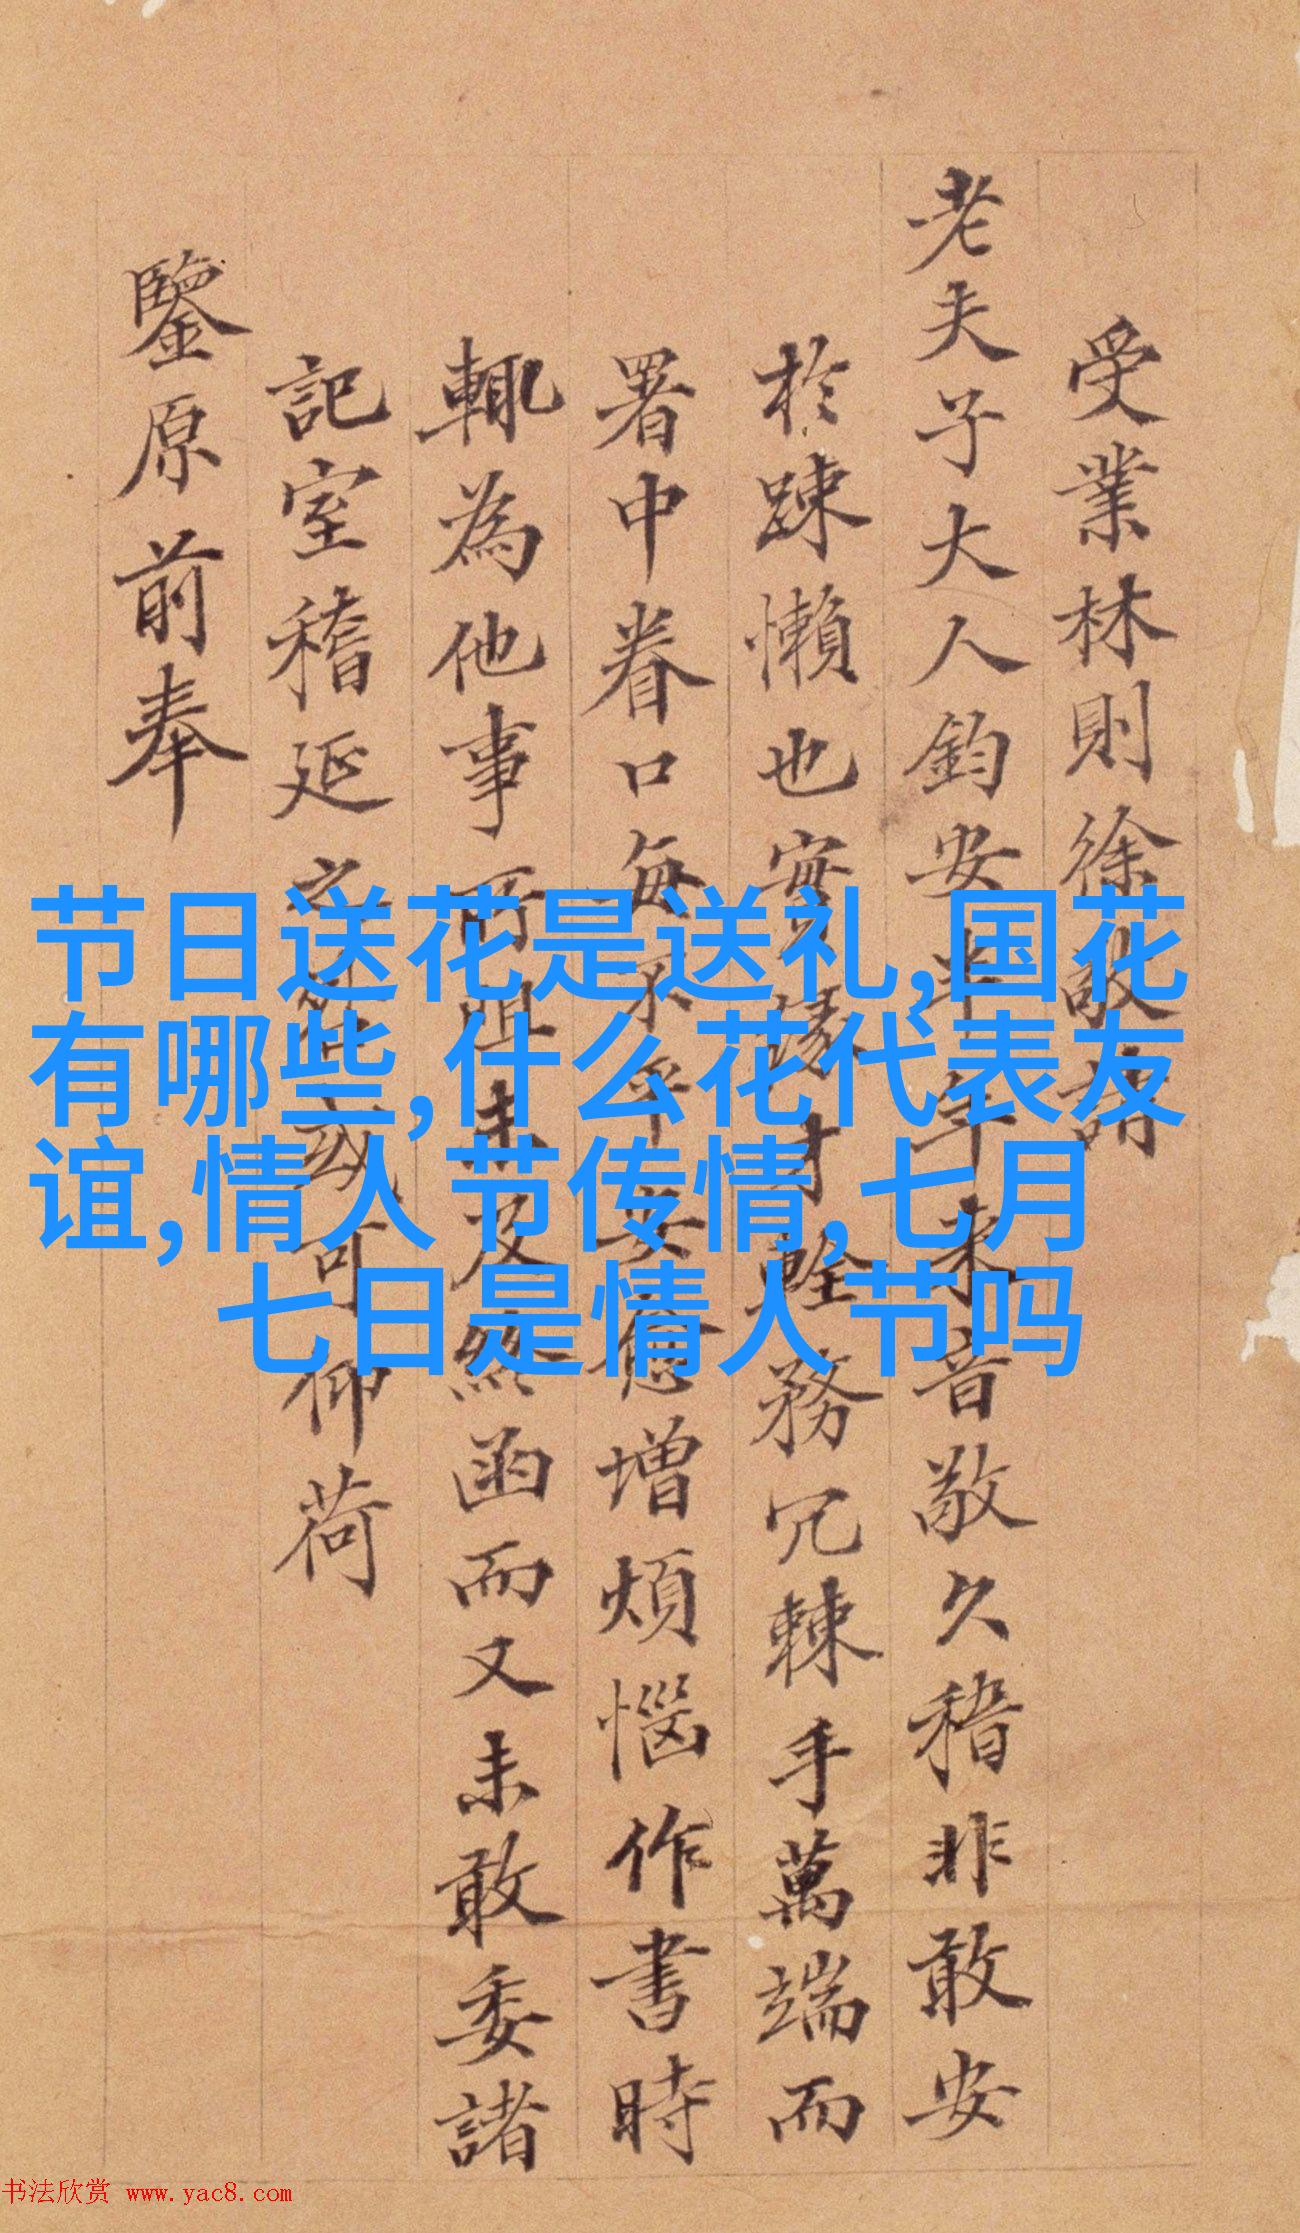 受業林則徐敬請
老夫子大人鈞安半年来音敬久稽非敢安
於踈懶也實緣才輇務冗棘手萬端而
署中眷口每不平安愈增煩惱作書時
輒為他事所阻未及終函而又未敢委諸
記室稽延之 或可仰荷
鑒原前奉
节日送花是送礼,国花
有哪些,什么花代表友
谊,情人节传情,七月
七日是情人节吗
书法欣赏 www.yac8.com